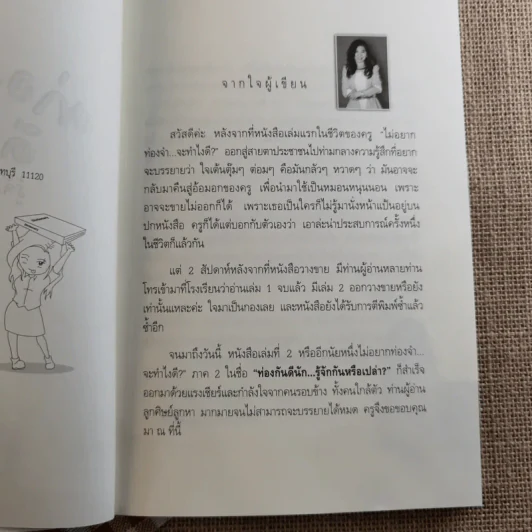 จากใจผู้เขียน
สวัสดีค่ะ หลังจากที่หนังสือเล่มแรกในชีวิตของครู "ไม่อยาก
ท่องจำ...จะทำไงดี?" ออกสู่สายตาประชาชนไปท่ามกลางความรู้สึกที่อยาก
จะบรรยายว่า ใจเต้นตุ๊มๆ ต่อมๆ คือมันกลัวๆ หวาดๆ ว่า มันอาจจะ
กลับมาคืนสู่อ้อมอกของครู เพื่อนำมาใช้เป็นหมอนหนุนนอน เพราะ
อาจจะขายไม่ออกก็ได้ เพราะเธอเป็นใครก็ไม่รู้มานั่งหน้าแป้นอยู่บน
ปกหนังสือ ครูก็ได้แต่บอกกับตัวเองว่า เอาล่ะน่าประสบการณ์ครั้งหนึ่ง
ในชีวิตก็แล้วกัน
แต่ 2 สัปดาห์หลังจากที่หนังสือวางขาย มีท่านผู้อ่านหลายท่าน
โทรเข้ามาที่โรงเรียนว่าอ่านเล่ม 1 จบแล้ว มีเล่ม 2 ออกวางขายหรือยัง
เท่านั้นแหละค่ะ ใจมาเป็นกองเลย และหนังสือยังได้รับการตีพิมพ์ซ้ำแล้ว
ซ้ำอีก
จนมาถึงวันนี้ หนังสือเล่มที่ 2 หรืออีกนัยหนึ่งไม่อยากท่องจำ...
จะทำไงดี?" ภาค 2 ในชื่อ "ท่องกันดีนัก...รู้จักกันหรือเปล่า?" ก็สำเร็จ
ออกมาด้วยแรงเชียร์และกำลังใจจากคนรอบข้าง ทั้งคนใกล้ตัว ท่านผู้อ่าน
ลูกศิษย์ลูกหา มากมายจนไม่สามารถจะบรรยายได้หมด ครูจึงขอขอบคุณ
มา ณ ที่นี้
ทบุรี 11120